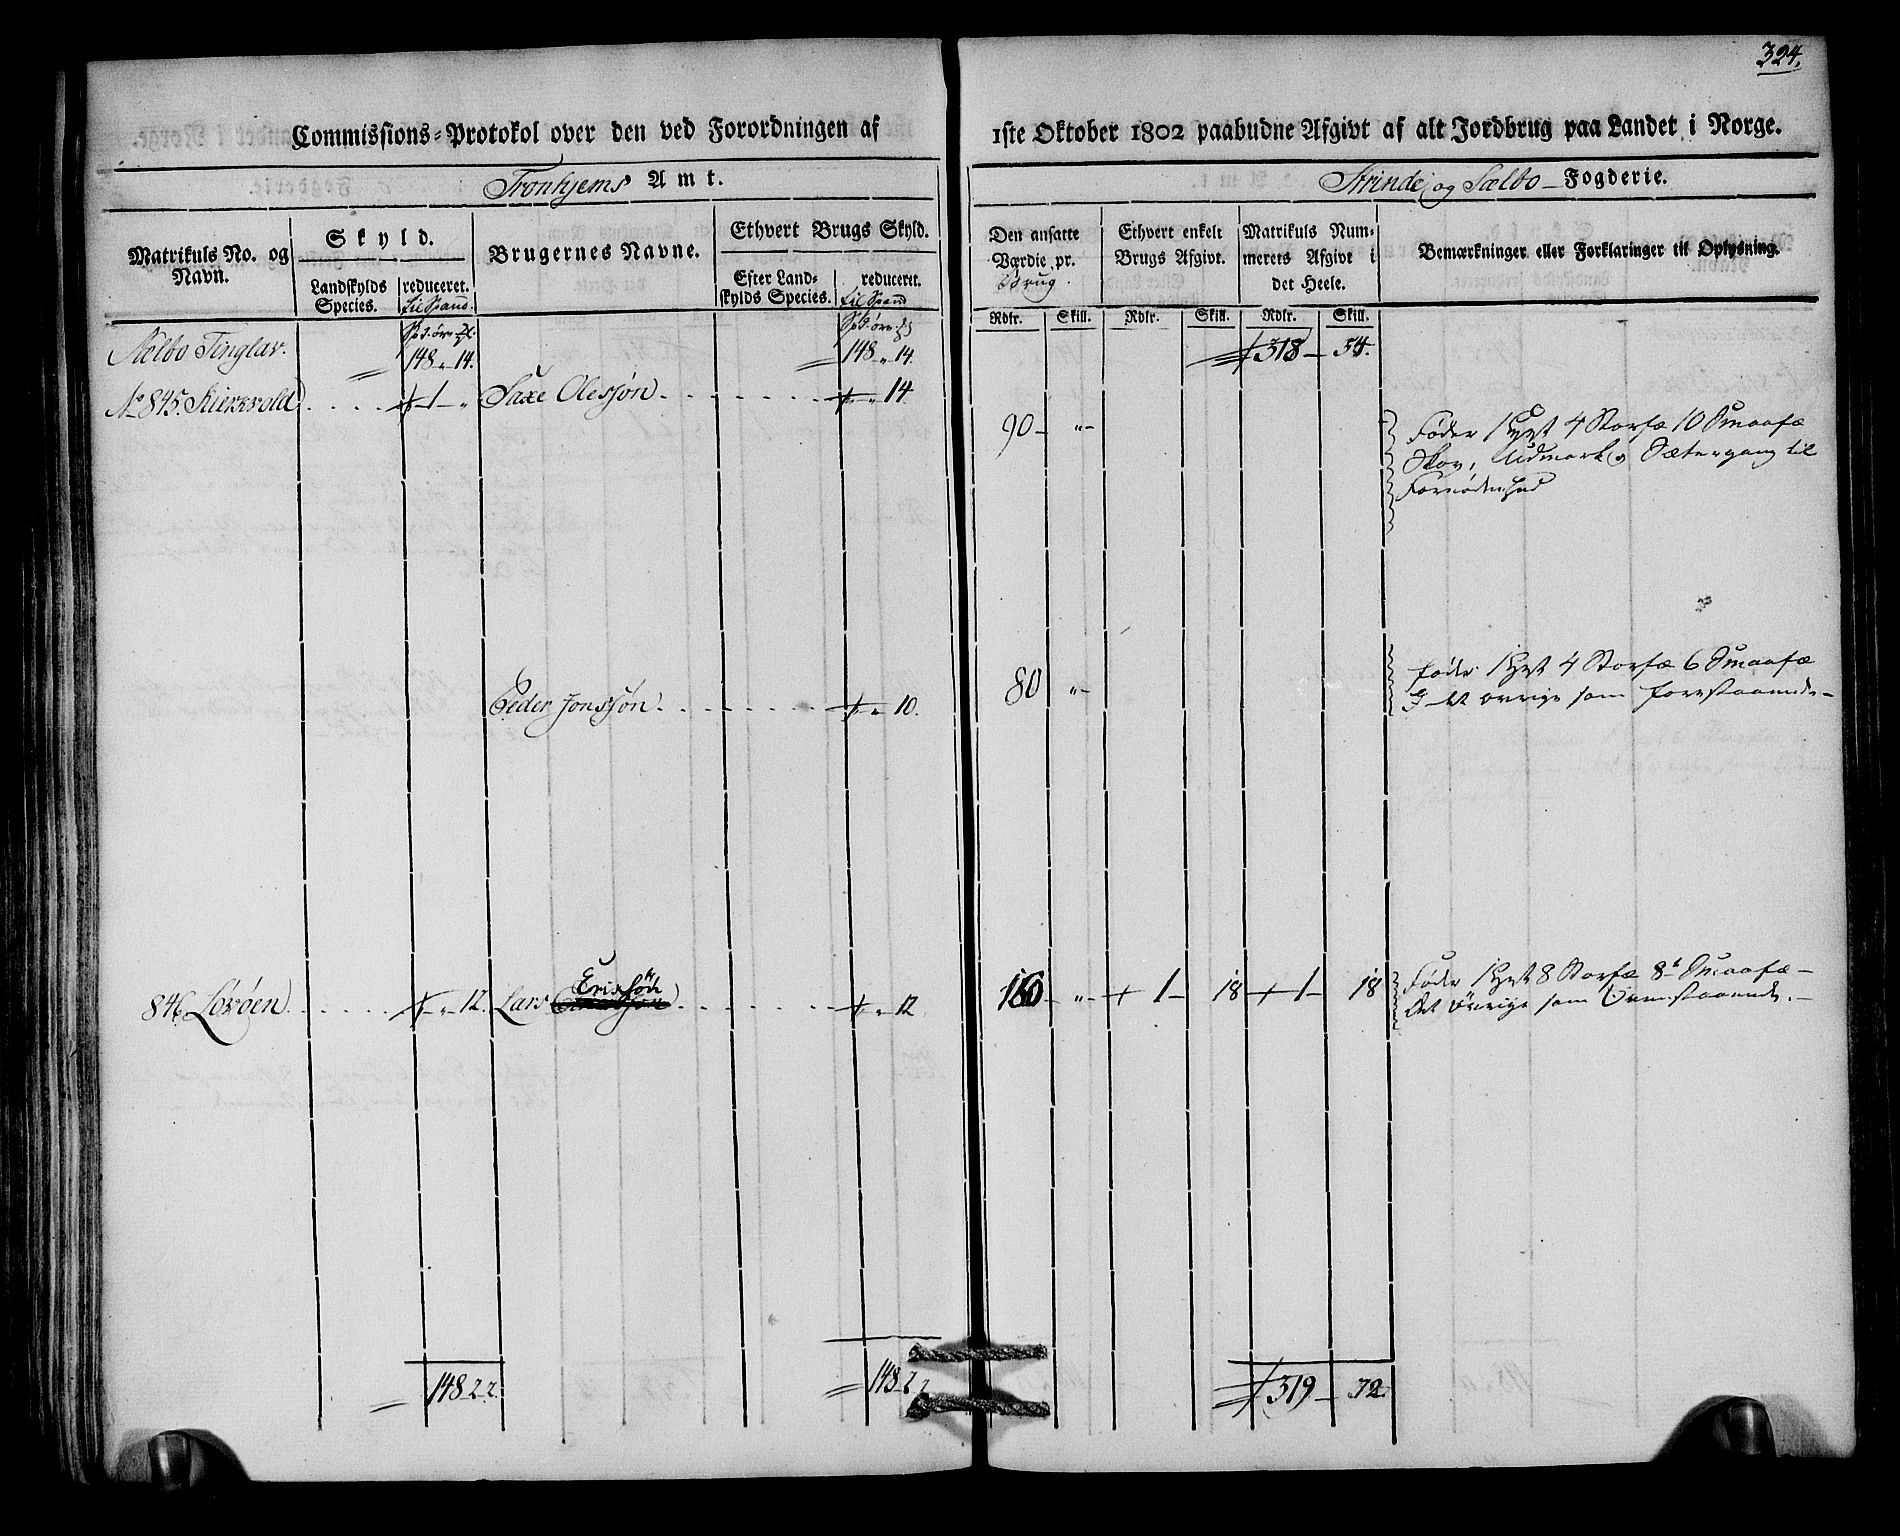 324.
Commissions-Protokol over den ved Forordningen af
1ste Oktober 1802 paabudne Afgivt af alt Jordbrug paa Landet i Norge.
Tronhjems Amt.
Strinde og Sælbo Fogderie.
Matrikuls No. og Navn.
Skyld.
Landskylds Species.
reduceret. til Spand.
Brugernes Navne.
Ethvert Brugs Skyld.
Efter Landskylds Species.
reduceret. til Spand
Den ansatte Værdie pr. Brug.
Ethvert enkelt Brugs Afgivt.
Matrikuls Nummerets Afgivt i det Heele.
Bemærkninger eller Forklaringer til Oplysning.
Rdlr. Skill. Rdlr. Skill. Rdlr. Skill.
Sælbo Tinglav. 148 „ 14. 148 „ 14. 318 – 54.
No 845. Kiersvold . . . . 1 „ Saxe Olessøn . . . . . . . „ 14
90 – „ –
Føder 1 Hest 4 Storfæ 10 Smaafæ
Skov, Udmark og Sætergang til
Fornødenhed
Peder Jonssøn . . . . . . . „ 10.
80 „ –
føder 1 Hest 4 Storfæ 6 Smaafæ
det øvrige som forestaaende –
Erixsøn
846 Lorøen . . . . . „ 12. Lars . . . . . . . „ 12
160 – „ – 1 – 18 1 – 18
Føder 1 Hest 8 Storfæ 8 Smaafæ –
det øvrige som Ovenstaaende. –
148 2 2. 148 2 2 319 – 72.